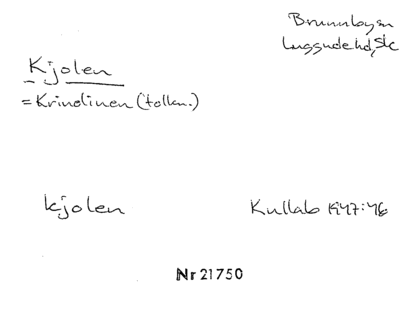 Brunnbysn
Luggudehd, Sk
Kjolen
= Krinolinen (tolkn.)
kjolen
Kullab 1947:46
Nr 21750